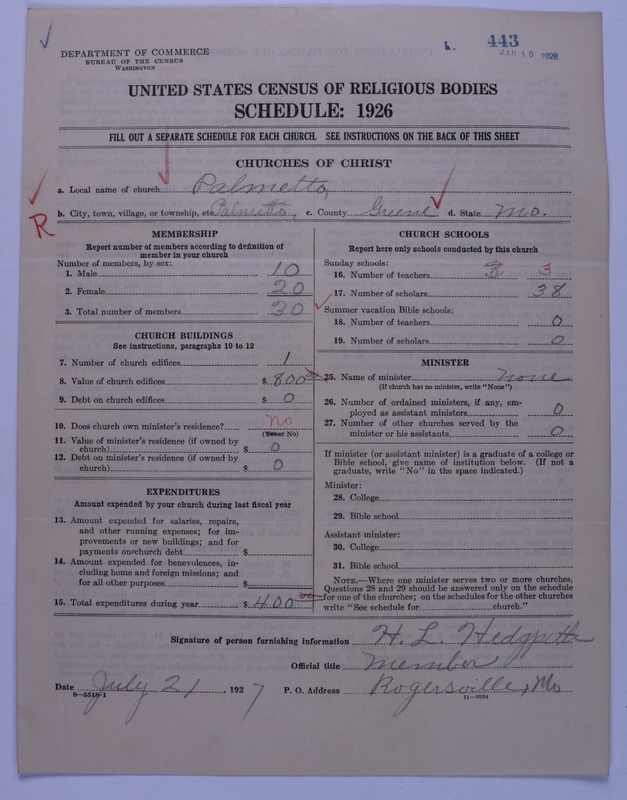 443
JAN 10 1928
DEPARTMENT OF COMMERCE
BUREAU OF THE CENSUS
WASHINGTON
UNITED STATES CENSUS OF RELIGIOUS BODIES
SCHEDULE: 1926
FILL OUT A SEPARATE SCHEDULE FOR EACH CHURCH. SEE INSTRUCTIONS ON THE BACK OF THIS SHEET
CHURCHES OF CHRIST
a. Local name of church Palmetto
b. City, town, village, or township, etc. Palmetto, c. County Greene d. State Mo.
R
MEMBERSHIP
Report number of members according to definition of
member in your church
Number of members, by sex:
1. Male 10
2. Female 20
3. Total number of members 30
CHURCH BUILDINGS
See instructions, paragraphs 10 to 12
7. Number of church edifices 1
8. Value of church edifices $ 800 00
9. Debt on church edifices $ 0
10. Does church own minister's residence? no
(Yes or No)
11. Value of minister's residence (if owned by
church) $ 0
12. Debt on minister's residence (if owned by
church) $ 0
EXPENDITURES
Amount expended by your church during last fiscal year
13. Amount expended for salaries, repairs,
and other running expenses; for im-
provements or new buildings; and for
payments on church debt $
14. Amount expended for benevolences, in-
cluding home and foreign missions; and
for all other purposes $
15. Total expenditures during year $ 400 00
CHURCH SCHOOLS
Report here only schools conducted by this church
Sunday schools:
16. Number of teachers 3 3
17. Number of scholars 38
Summer vacation Bible schools:
18. Number of teachers 0
19. Number of scholars 0
MINISTER
25. Name of minister none
(If church has no minister, write "None")
26. Number of ordained ministers, if any, em-
ployed as assistant ministers 0
27. Number of other churches served by the
minister or his assistants 0
If minister (or assistant minister) is a graduate of a college or
Bible school, give name of institution below. (If not a
graduate, write "No" in the space indicated.)
Minister:
28. College
29. Bible school
Assistant minister:
30. College
31. Bible school
NOTE.—Where one minister serves two or more churches,
Questions 28 and 29 should be answered only on the schedule
for one of the churches; on the schedules for the other churches
write "See schedule for church."
Signature of person furnishing information H. L. Hedgpeth
Official title member
Date July 21, 1927 P. O. Address Rogersville, Mo
8—5518-1
11—9204